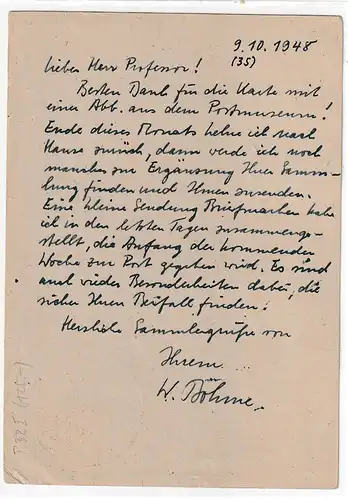 9.10.1948
(35)
Lieber Herr Professor!
Besten Dank für die Karte mit
einer Abb. aus dem Postmuseum!
Ende dieses Monats kehre ich nach
Hause zurück, dann werde ich noch
manches zur Ergänzung Ihrer Samm-
lung finden und Ihnen zusenden.
Eine kleine Sendung Briefmarken habe
ich in den letzten Tagen zusammenge-
stellt, die Anfang der kommenden
Woche zur Post gegeben wird. Es sind
auch wieder Besonderheiten dabei, die
sicher Ihren Beifall finden!
Herzliche Sammlergrüße von
Ihrem
W. Böhme.